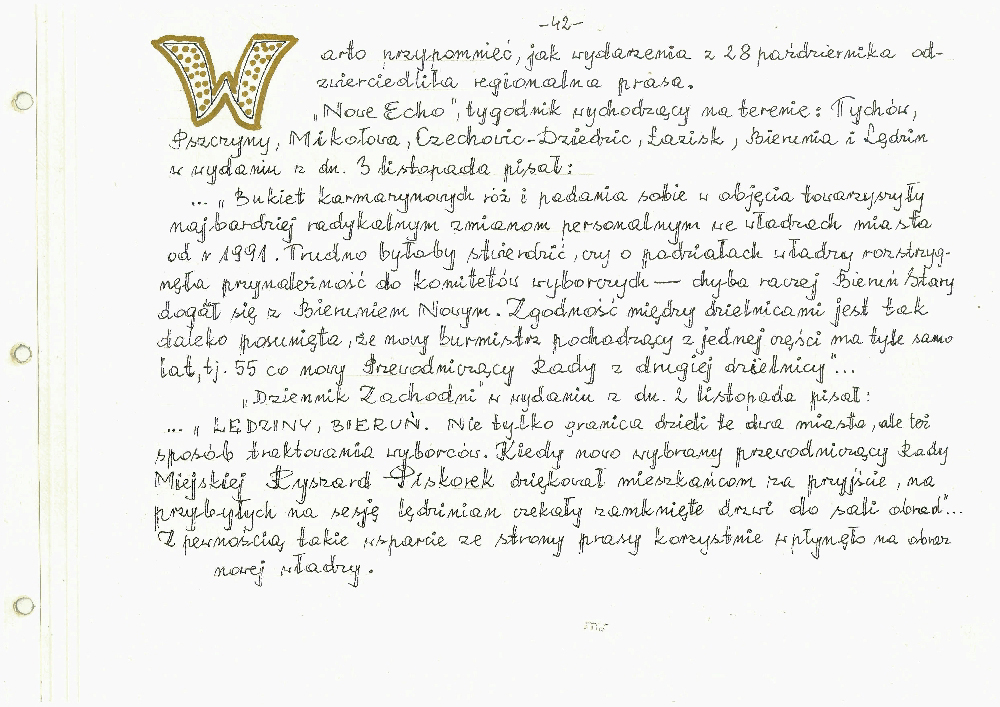 -42-
Warto przypomnieć, jak wydarzenia z 28 października od-
zwierciedliła regionalna prasa.
„Nowe Echo", tygodnik wychodzący na terenie: Tychów,
Pszczyny, Mikołowa, Czechowic-Dziedzic, Łazisk, Bierunia i Lędzin
w wydaniu z dn. 3 listopada pisał:
... „Bukiet karmazynowych róż i padania sobie w objęcia towarzyszyły
najbardziej radykalnym zmianom personalnym we władzach miasta
od r 1991. Trudno byłoby stwierdzić, czy o podziałach władzy rozstrzyg-
nęła przynależność do komitetów wyborczych — chyba raczej Bieruń Stary
dogał się z Bieruniem Nowym. Zgodność między dzielnicami jest tak
daleko posunięta, że nowy burmistrz pochodzący z jednej części ma tyle samo
lat, tj. 55 co nowy Przewodniczący Rady z drugiej dzielnicy"...
„Dziennik Zachodni" w wydaniu z dn. 2 listopada pisał:
... „LĘDZINY, BIERUŃ. Nie tylko granica dzieli te dwa miasta, ale też
sposób traktowania wyborców. Kiedy nowo wybrany przewodniczący Rady
Miejskiej Ryszard Piskorek dziękował mieszkańcom za przyjście, na
przybyłych na sesję lędzinian czekały zamknięte drzwi do sali obrad"...
Z pewnością takie wsparcie ze strony prasy korzystnie wpłynęło na obraz
nowej władzy.